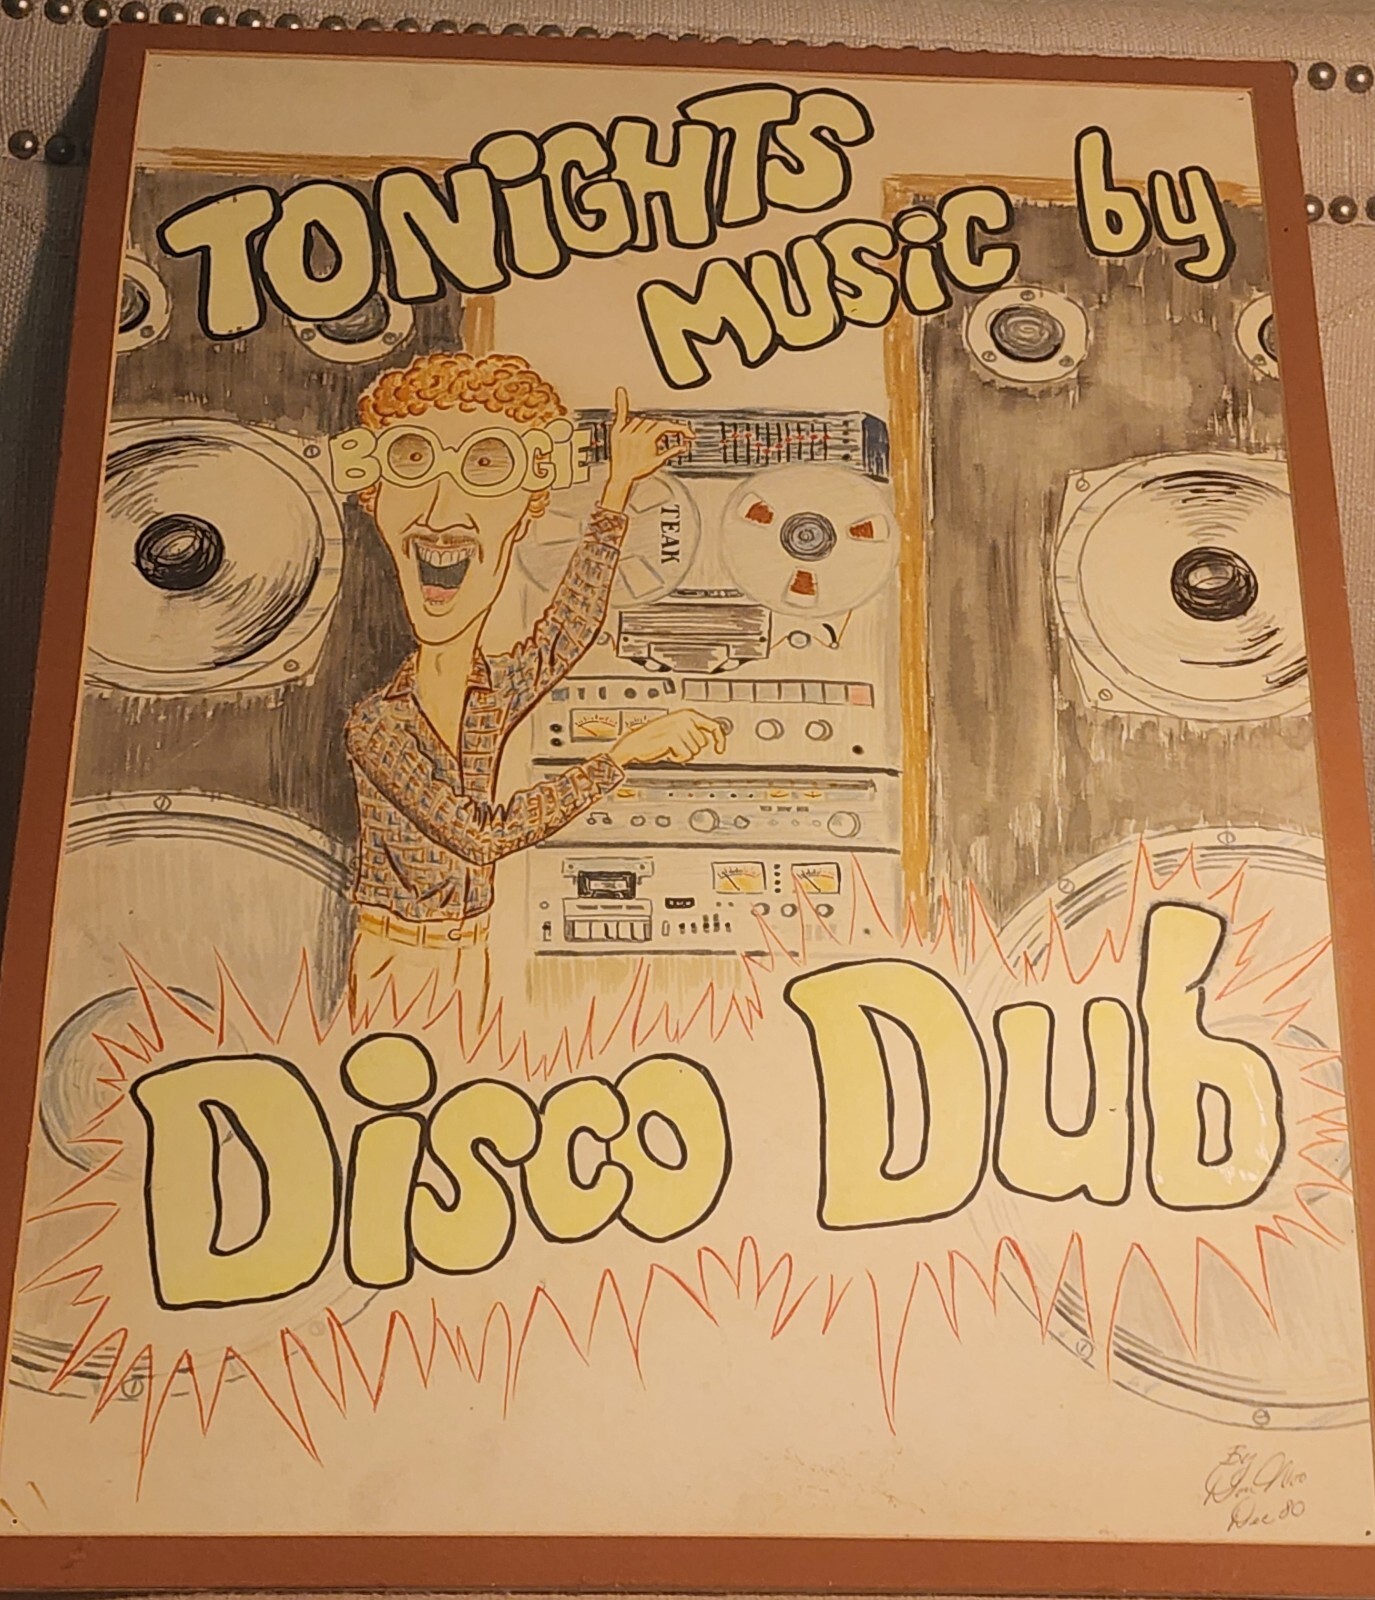 TONiGHTS
MUSiC by
BOOGiE
TEAK
Disco Dub
By
Dec 80